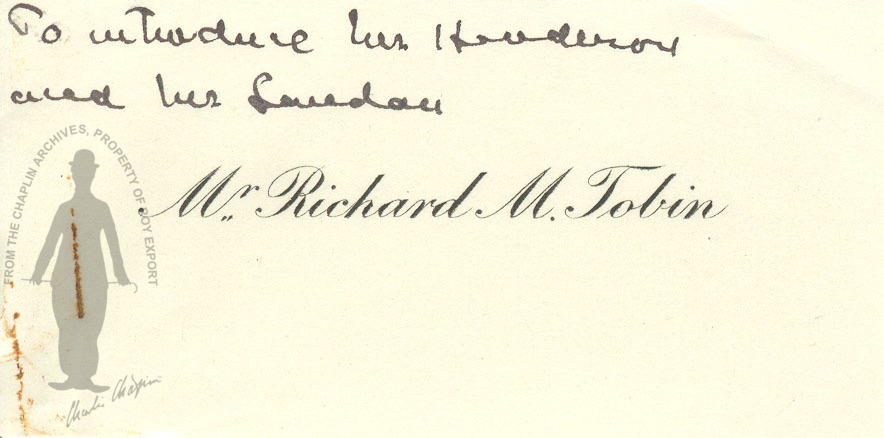 To introduce Mr Henderson
and Mr
Mr. Richard M. Tobin
FROM THE CHAPLIN ARCHIVES, PROPERTY OF ROY EXPORT
Charlie Chaplin